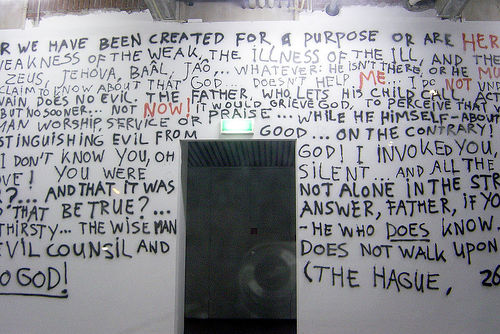 R WE HAVE BEEN CREATED FOR A PURPOSE OR ARE HER
WEAKNESS OF THE WEAK, THE ILLNESS OF THE ILL, AND THE
ZEUS, JEHOVA, BAÂL, JAO,.. WHATEVER: HE ISN'T THERE, OR HE MU
CLAIM TO KNOW ABOUT THAT GOD.. DOESN'T HELP ME... I DO NOT UND
VAIN, DOES NO EVIL. THE FATHER, WHO LETS HIS CHILD FALL
BUT NO SOONER... NOT NOW! IT WOULD GRIEVE GOD, TO PERCEIVE THAT
MAN WORSHIP, SERVICE OR PRAISE... WHILE HE HIMSELF - ABOUT
STINGUISHING EVIL FROM GOOD... ON THE CONTRARY!
I DON'T KNOW YOU, OH GOD! I INVOKED YOU,
VE! YOU WERE SILENT... AND ALL THE
?... AND THAT IT WAS NOT ALONE IN THE STR
THAT BE TRUE?... ANSWER, FATHER, IF YO
THIRSTY... THE WISE MAN - HE WHO DOES KNOW.
EVIL COUNSIL AND DOES NOT WALK UPON
O GOD! (THE HAGUE, 20